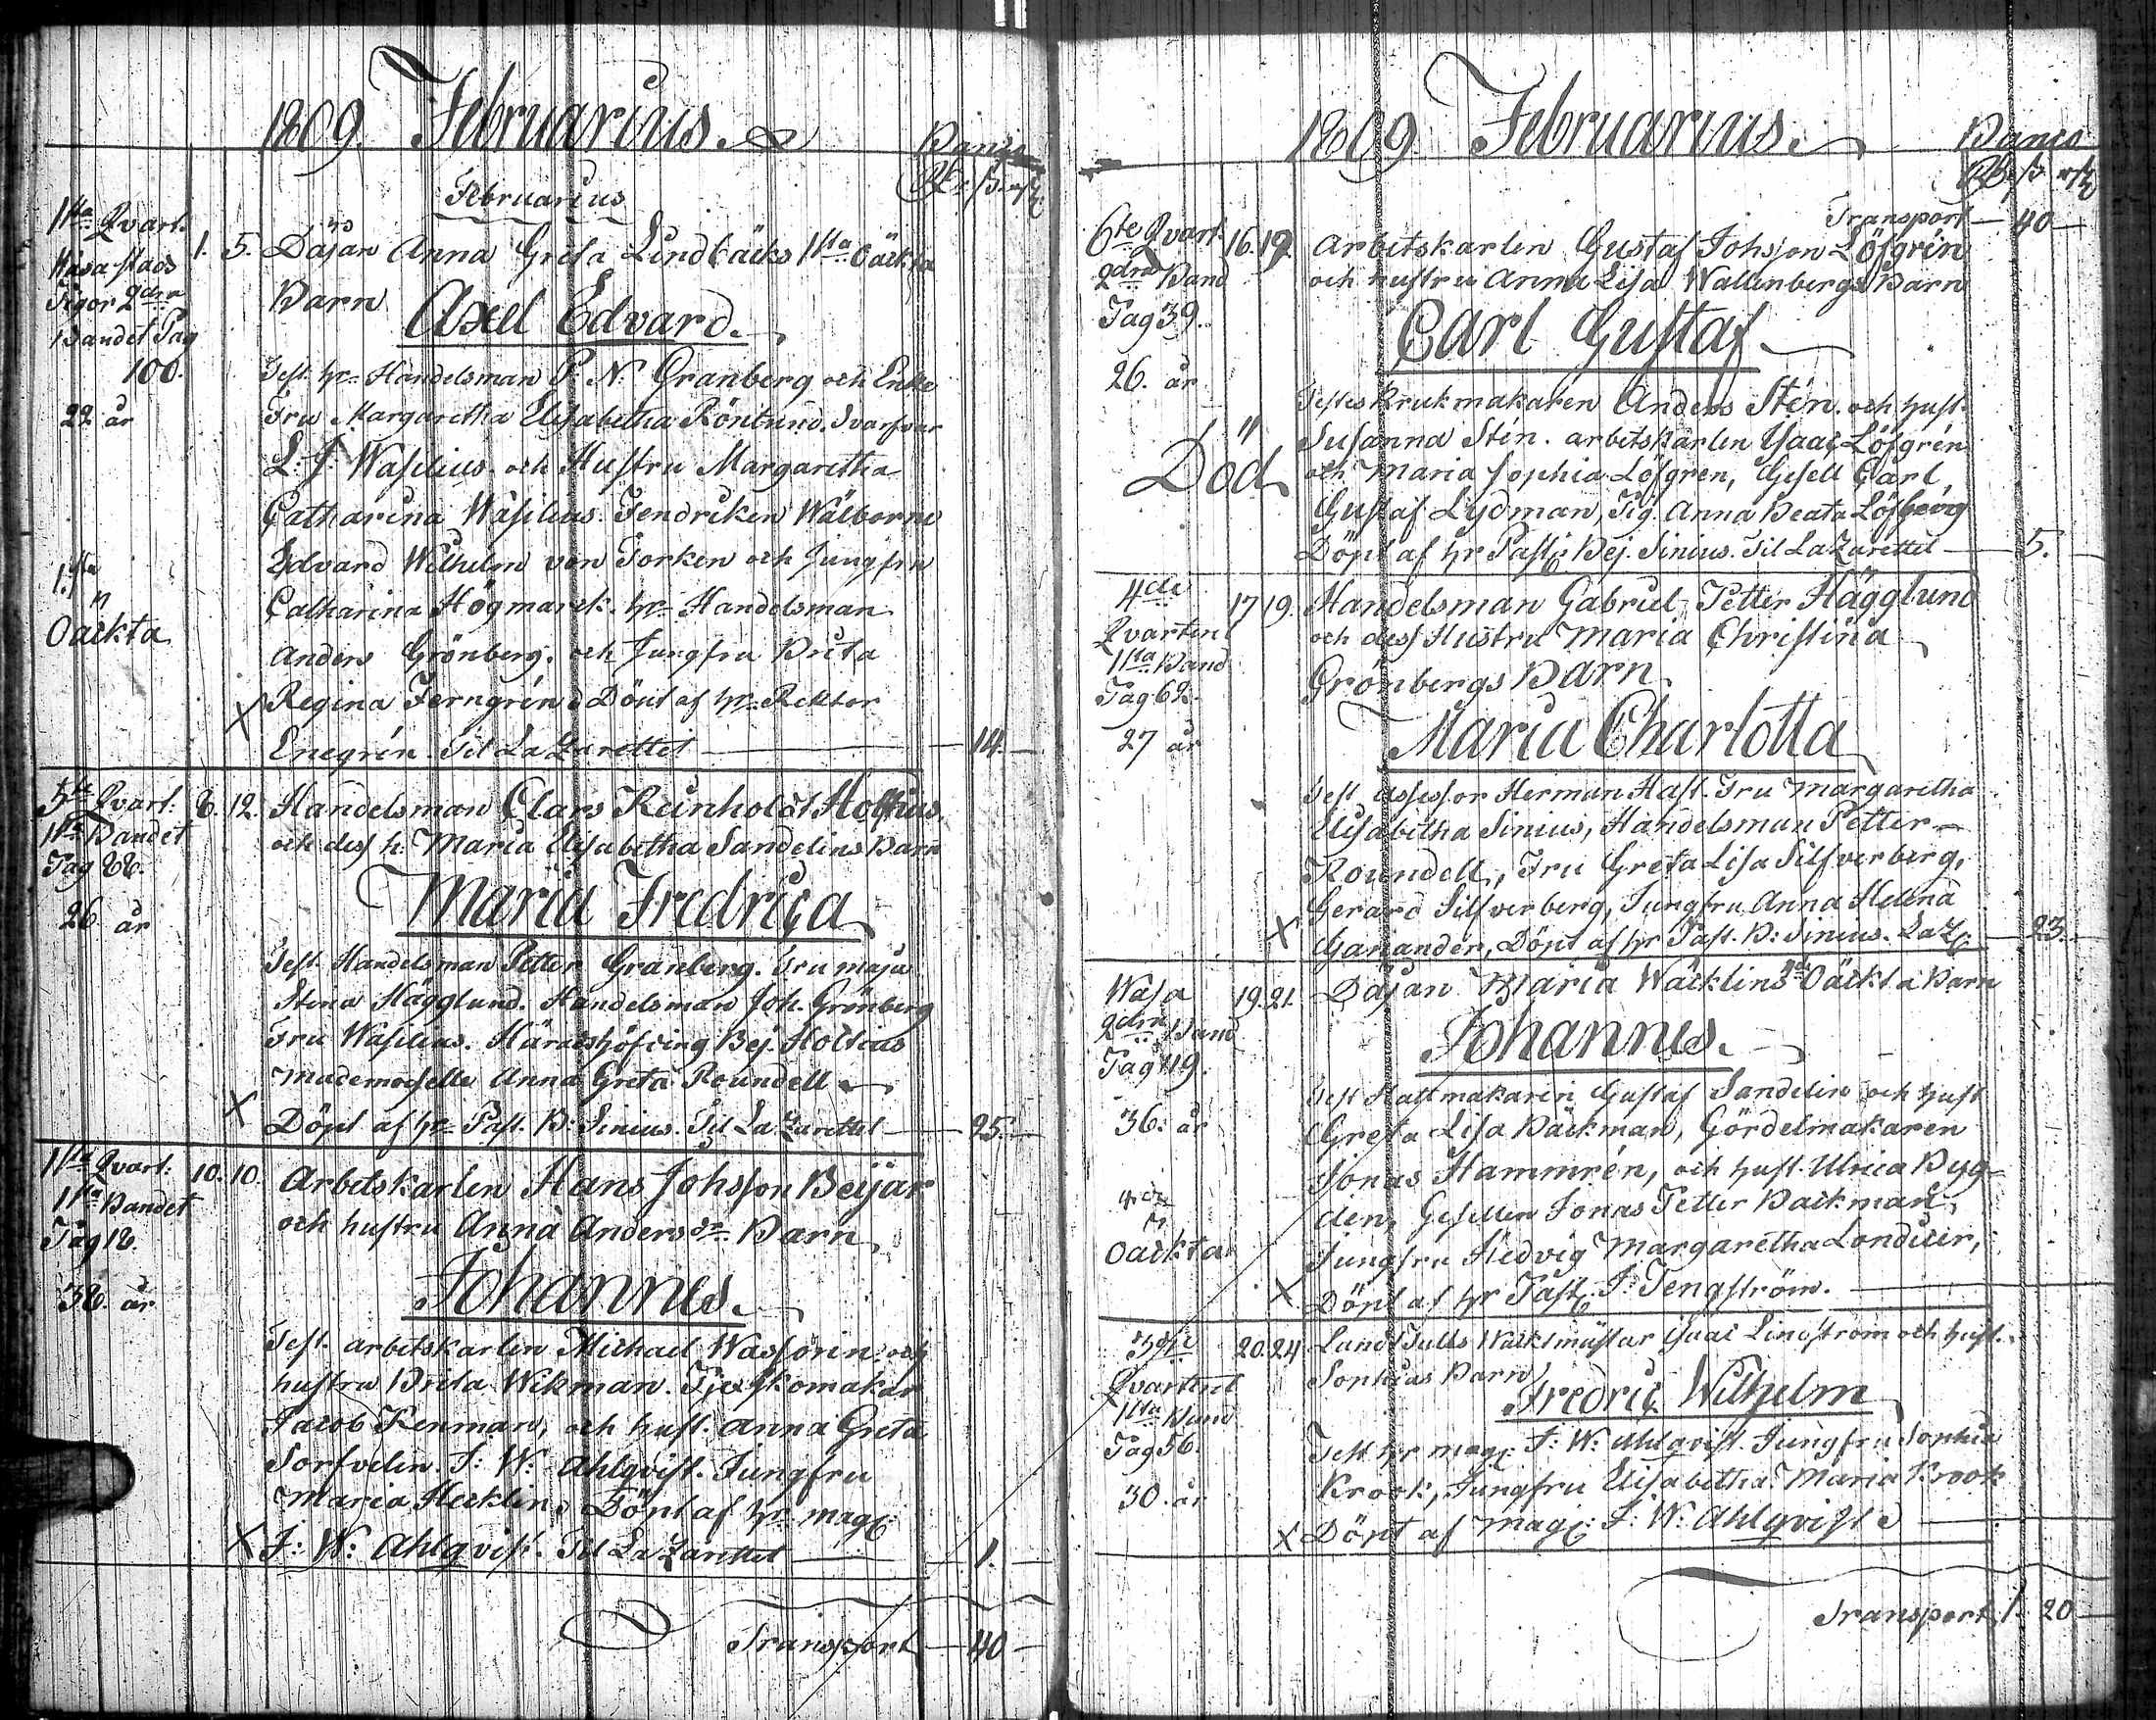 1809. Februarius.
Banco
Rd. ß. rst.
Februarius
1sta Qvart.
Wasa stads
Pigor 2dra
Bandet Pag
100.
22 år
1sta
n
Oäckta
1. 5. Däjan Anna Greta Lindbäcks 1sta Oäckta
Barn
Axel Edvard.
Test. hr Handelsman P. N. Granberg och Enke
Fru Margaretha Elisabetha Rönlund. Svarfvar
L. J. Wasilius och Hustru Margaretha
Catharina Wasilius. Fendriken Wälborne
Edvard Wilhelm von Torken och Jungfru
Catharina Högmarck. hr Handelsman
Anders Grönberg, och Jungfru Brita
Regina Ferngrén, Döpt af hr Rektor
X Enegrén. Til Lazarettet — 14. —
5te Qvart:
1sta Bandet
Pag 88.
26 år
8. 12. Handelsman Clars Reinholdt Holtius,
och dess h. Maria Elisabetha Sandelins Barn
Maria Fredrica
Test. Handelsman Petter Granberg. Fru Maja
Stina Hägglund. Handelsman Joh. Grönberg
Fru Wasilius. Häradshöfding Bej. Holtius
Mademoiselle Anna Greta Roundell
X Döpt af hr Past. B: Sinius. Til Lazarettet — 25. —
1sta Qvart:
1sta Bandet
Pag 18.
38. år
10. 10. Arbetskarlen Hans Johsson Beijar
och hustru Anna Andersdr Barn
Johannes.
Test. arbetskarlen Michael Wassoren och
hustru Brita Wikman. Skomakar
Jacob Kenman, och hust. Anna Greta
Sorfvelin. J: W: Ahlqvist. Jungfru
Maria Hecklin, Döpt af hr mag:
X J: W: Ahlqvist. Til Lazarettet — 1. —
Transport — 40 —
1809 Februarius.
Banco
Rd. ß. rst.
Transport — 40 —
6te Qvart.
2dra Band
Pag 39.
26. år
Död
16. 19. Arbetskarlen Gustaf Johsson Löfgrén
och hustru Anna Lisa Wallenbergs Barn
Carl Gustaf
Testes Krukmakaren Anders Stén. och hust.
Susanna Stén. arbetskarlen Isaac Löfgrén
och Maria Sophia Löfgren, Gesell Carl,
Gustaf Lydman, Pig. Anna Beata Löfberg
Döpt af hr Past: Bej. Sinius. Til Lazarettet — 5. —
4de
Qvartent
1sta Band
Pag 62.
27 år
17 19. Handelsman Gabriel Petter Hägglund
och dess Hustru Maria Christina
Grönbergs Barn
Maria Charlotta
Test Assessor Herman Hast. Fru Margaretha
Elisabetha Sinius, Handelsman Petter
Roundell, Fru Greta Lisa Silfverberg,
Gerard Silfverberg, Jungfru Anna Helena
X Garjander, Döpt af hr Past. B: Sinius. Laz: — 23. —
Wasa
2dra Band
Pag 119.
36: år
2dra
n
Oäckta
19. 21. Däjan Maria Wäcklins 2dra Oäckta Barn
Johannes.
Test Hattmakaren Gustaf Sandelin och hust
Greta Lisa Bäckman, Gördelmakaren
Jonas Hammrén, och hust. Ulrica Byg-
den, Gesellen Jonas Petter Backman,
Jungfru Hedvig Margaretha Londicer,
X Döpt af hr Past: J: Tengström.
3die
Qvartent
1sta Band
Pag 56.
30. år
20. 24 Landt Tulls Wacktmästar Isaac Lindström och hust.
Sophias Barn
Fredric Wilhelm
Test hr mag: J: W: Ahlqvist. Jungfru Sophia
Krook, Jungfru Elisabetha Maria Krook
X Döpt af Mag: J: W: Ahlqvist
Transport 1. 20 —